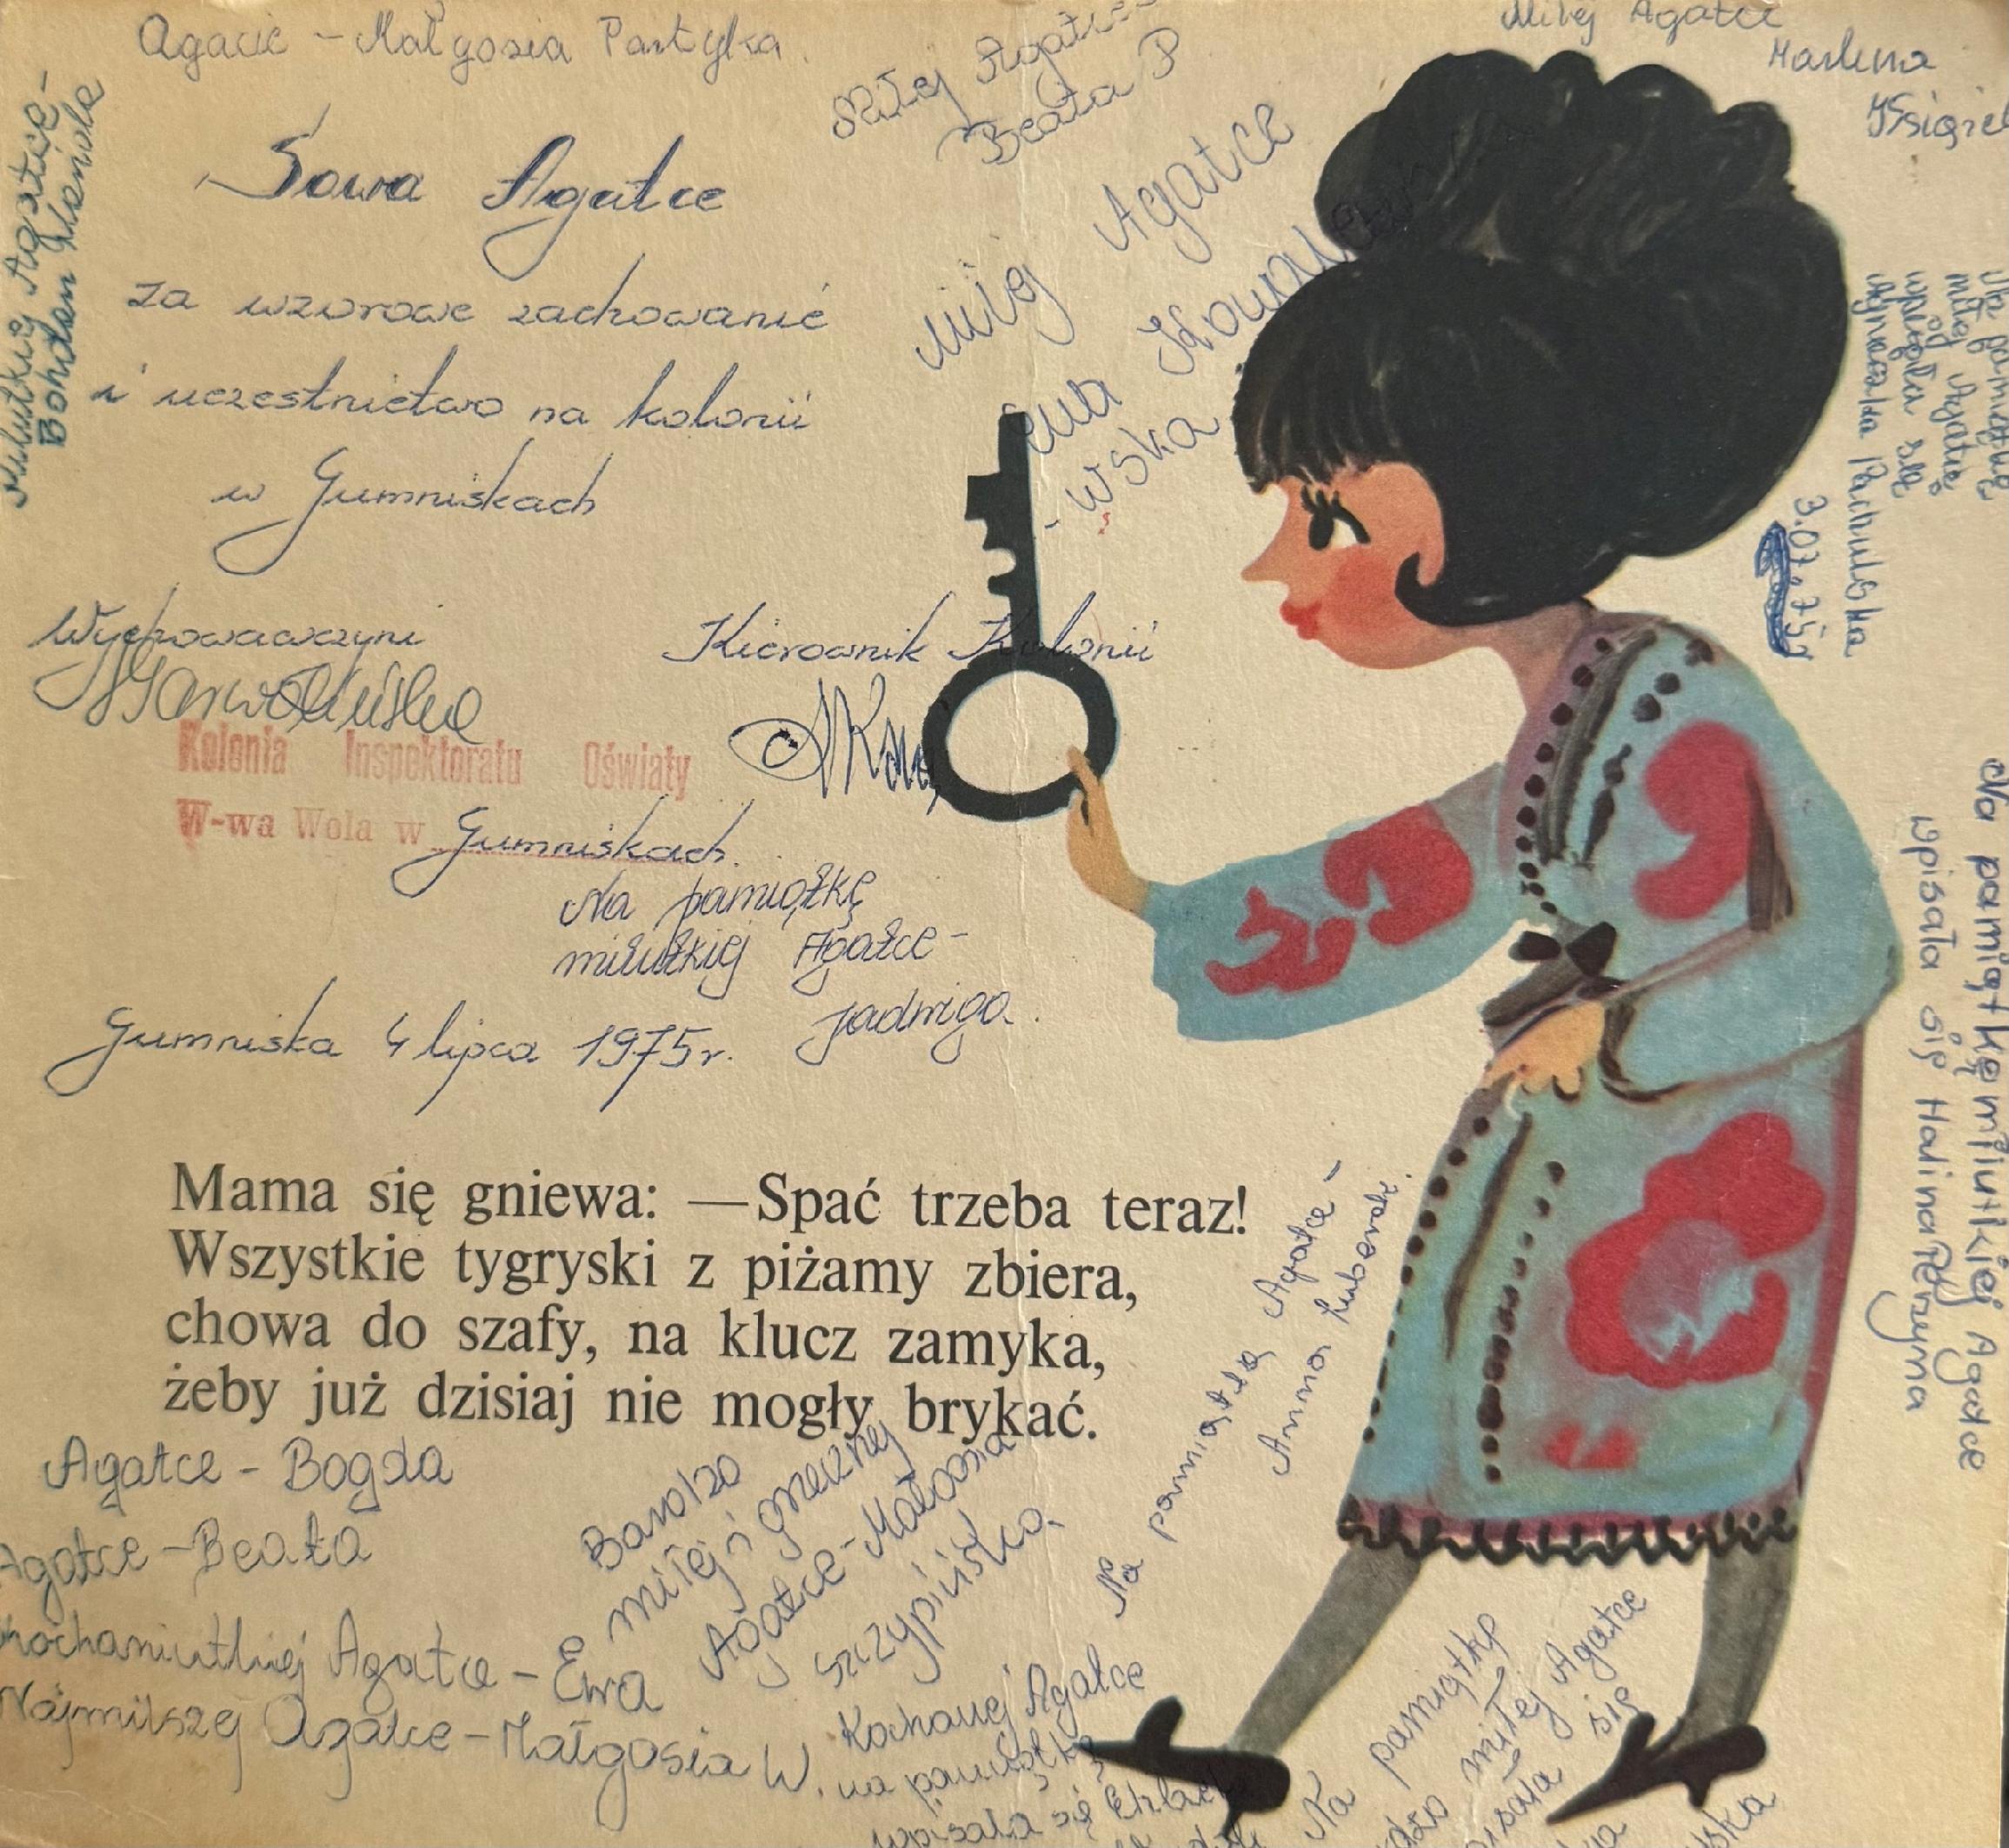 Agacie - Małgosia Partyka.
Miłej Agatce
Beata P
Miłej Agatce
Marlena
Milutkiej Agatce -
Bohdan
Sowa Agatce
za wzorowe zachowanie
i uczestnictwo na kolonii
w Gumniskach
Miłej Agatce
Ewa
- wska
miłej Agatce
od
wpisała się
Agnieszka Pachulska
3.07.75r
Wychowawczyni
Kierownik Kolonii
Kolonia Inspektoratu Oświaty
W-wa Wola w Gumniskach.
Na pamiątkę
milutkiej Agatce -
Jadwiga.
Gumniska 4 lipca 1975r.
Na pamiątkę milutkiej Agatce
wpisała się Halina
Mama się gniewa: —Spać trzeba teraz!
Wszystkie tygryski z piżamy zbiera,
chowa do szafy, na klucz zamyka,
żeby już dzisiaj nie mogły brykać.
Na pamiątkę Agatce -
Anna
Agatce - Bogda
Agatce - Beata
Agatce - Ewa
Najmilszej Agatce - Małgosia W.
Bardzo
miłej i grzecznej
Agatce - Małgosia
Szczypińska.
Kochanej Agatce
na pamiątkę
wpisała się
Na pamiątkę
miłej Agatce
się